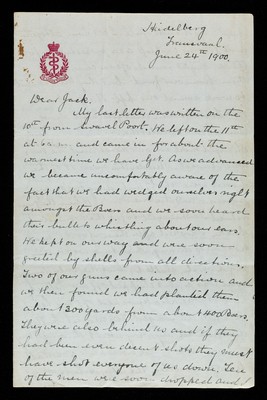 Heidelberg
Transvaal.
June 24th 1900.
Dear Jack.
My last letter was written on the
10th from Zwavel Poort. We left on the 11th
at 5 a.m. and came in for about the
warmest time we have yet. As we advanced
we became uncomfortably aware of the
fact that we had wedged ourselves right
amongst the Boers and we soon heard
their bullets whistling about our ears.
We kept on our way and were soon
greeted by shells from all directions.
Two of our guns came into action and
we then found we had planted them
about 1200 yards from about 1400 Boers.
They were also behind us and if they
had been even decent shots they must
have shot everyone of us down. Ten
of the men were soon dropped and